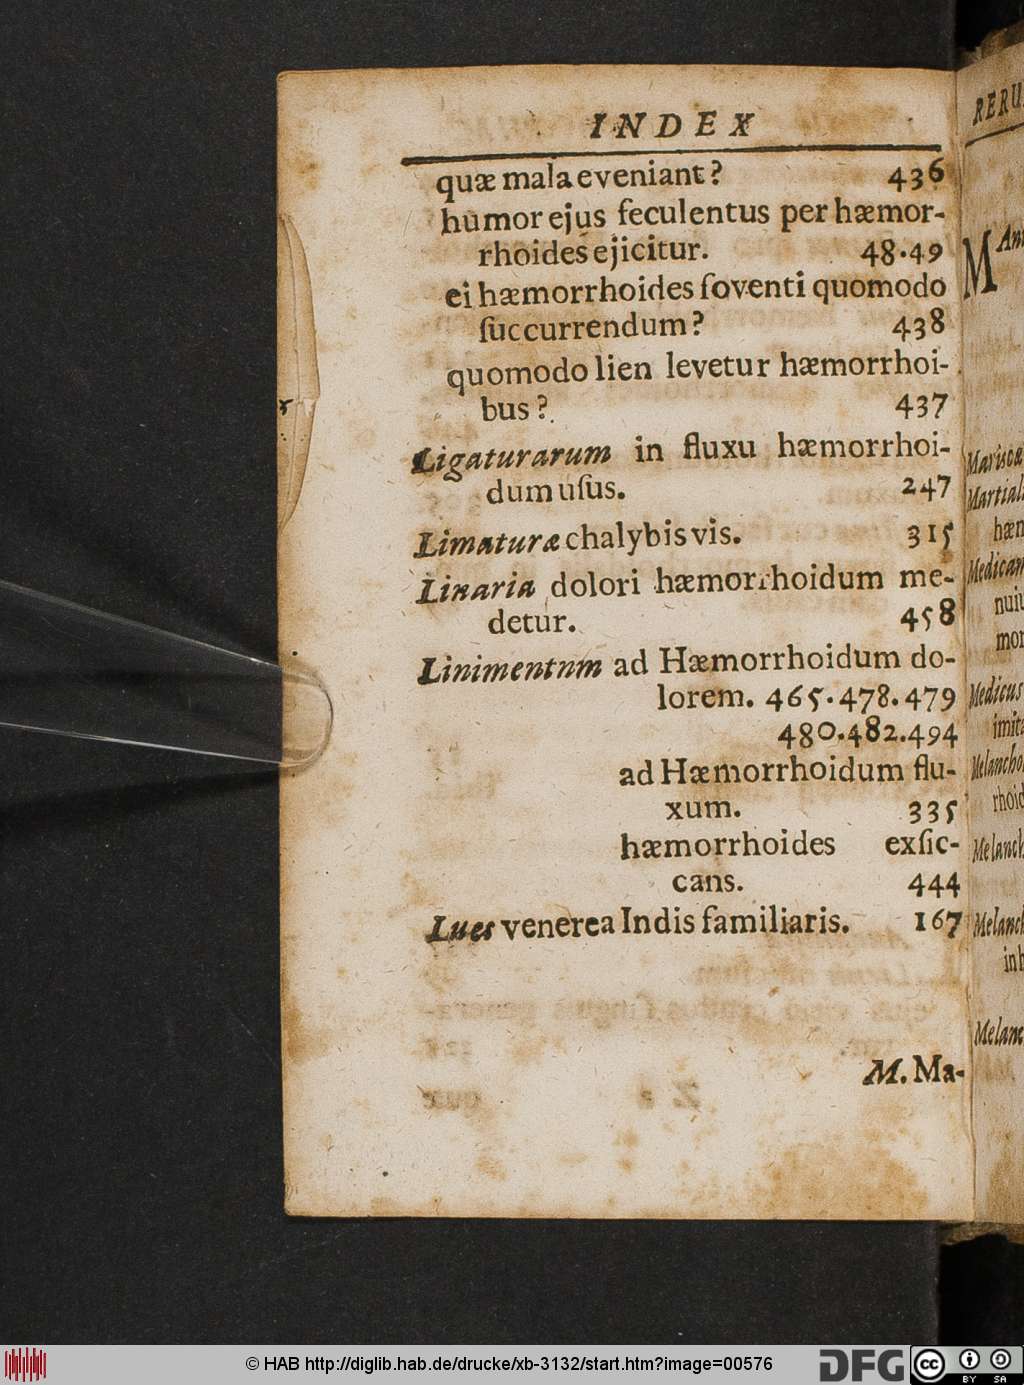 INDEX
quæ mala eveniant? 436
humor ejus feculentus per hæmor-
rhoides ejicitur. 48.49
ei hæmorrhoides foventi quomodo
ſuccurrendum? 438
quomodo lien levetur hæmorrhoi-
bus? 437
Ligaturarum in fluxu hæmorrhoi-
dum uſus. 247
Limaturæ chalybis vis. 315
Linaria dolori hæmorrhoidum me-
detur. 458
Linimentum ad Hæmorrhoidum do-
lorem. 465.478.479
480.482.494
ad Hæmorrhoidum flu-
xum. 335
hæmorrhoides exſic-
cans. 444
Lues venerea Indis familiaris. 167
M. Ma-
RERU
M
Mariscæ
Martial
hæm
Medicam
mor
Medicus
imita
Melancho
rhoid
Melanch
Melanch
in h
Melanc
© HAB http://diglib.hab.de/drucke/xb-3132/start.htm?image=00576
DFG
cc
BY SA